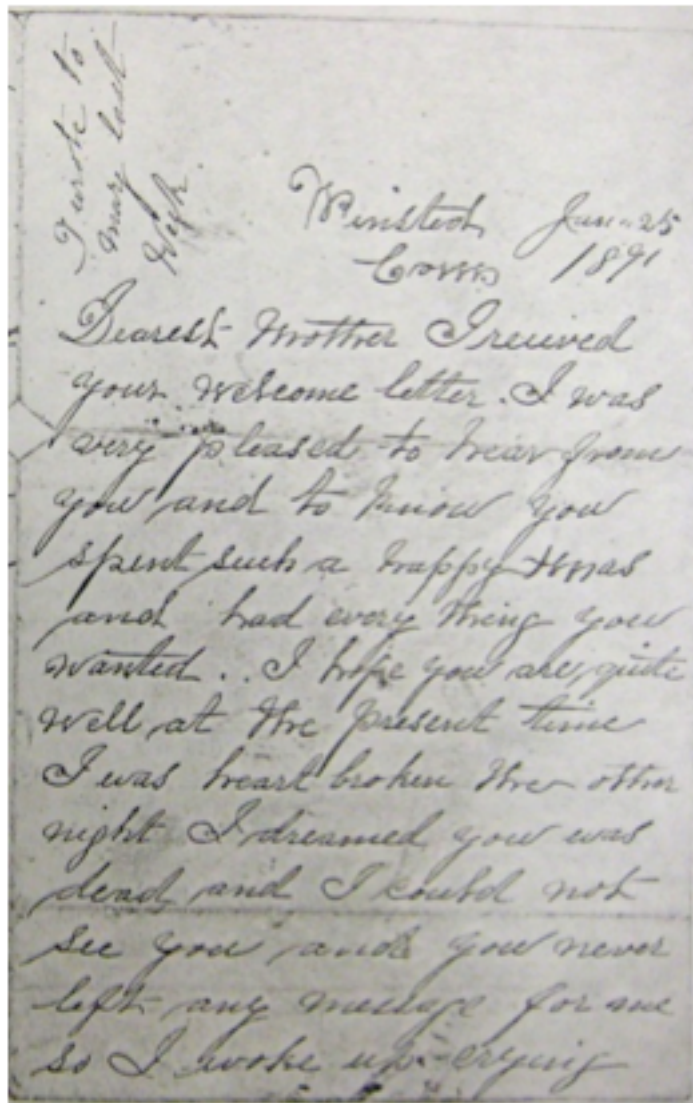 I wrote to
mary last
Winsted Jan. 25
Conn 1891
Dearest Mother I recived
your welcome letter. I was
very pleased to hear from
you and to know you
spent such a happy Xmas
and had every thing you
wanted.. I hope you are quite
well at the present time
I was heart broken the other
night I dreamed you was
dead and I could not
see you and you never
left any message for me
so I awoke up crying